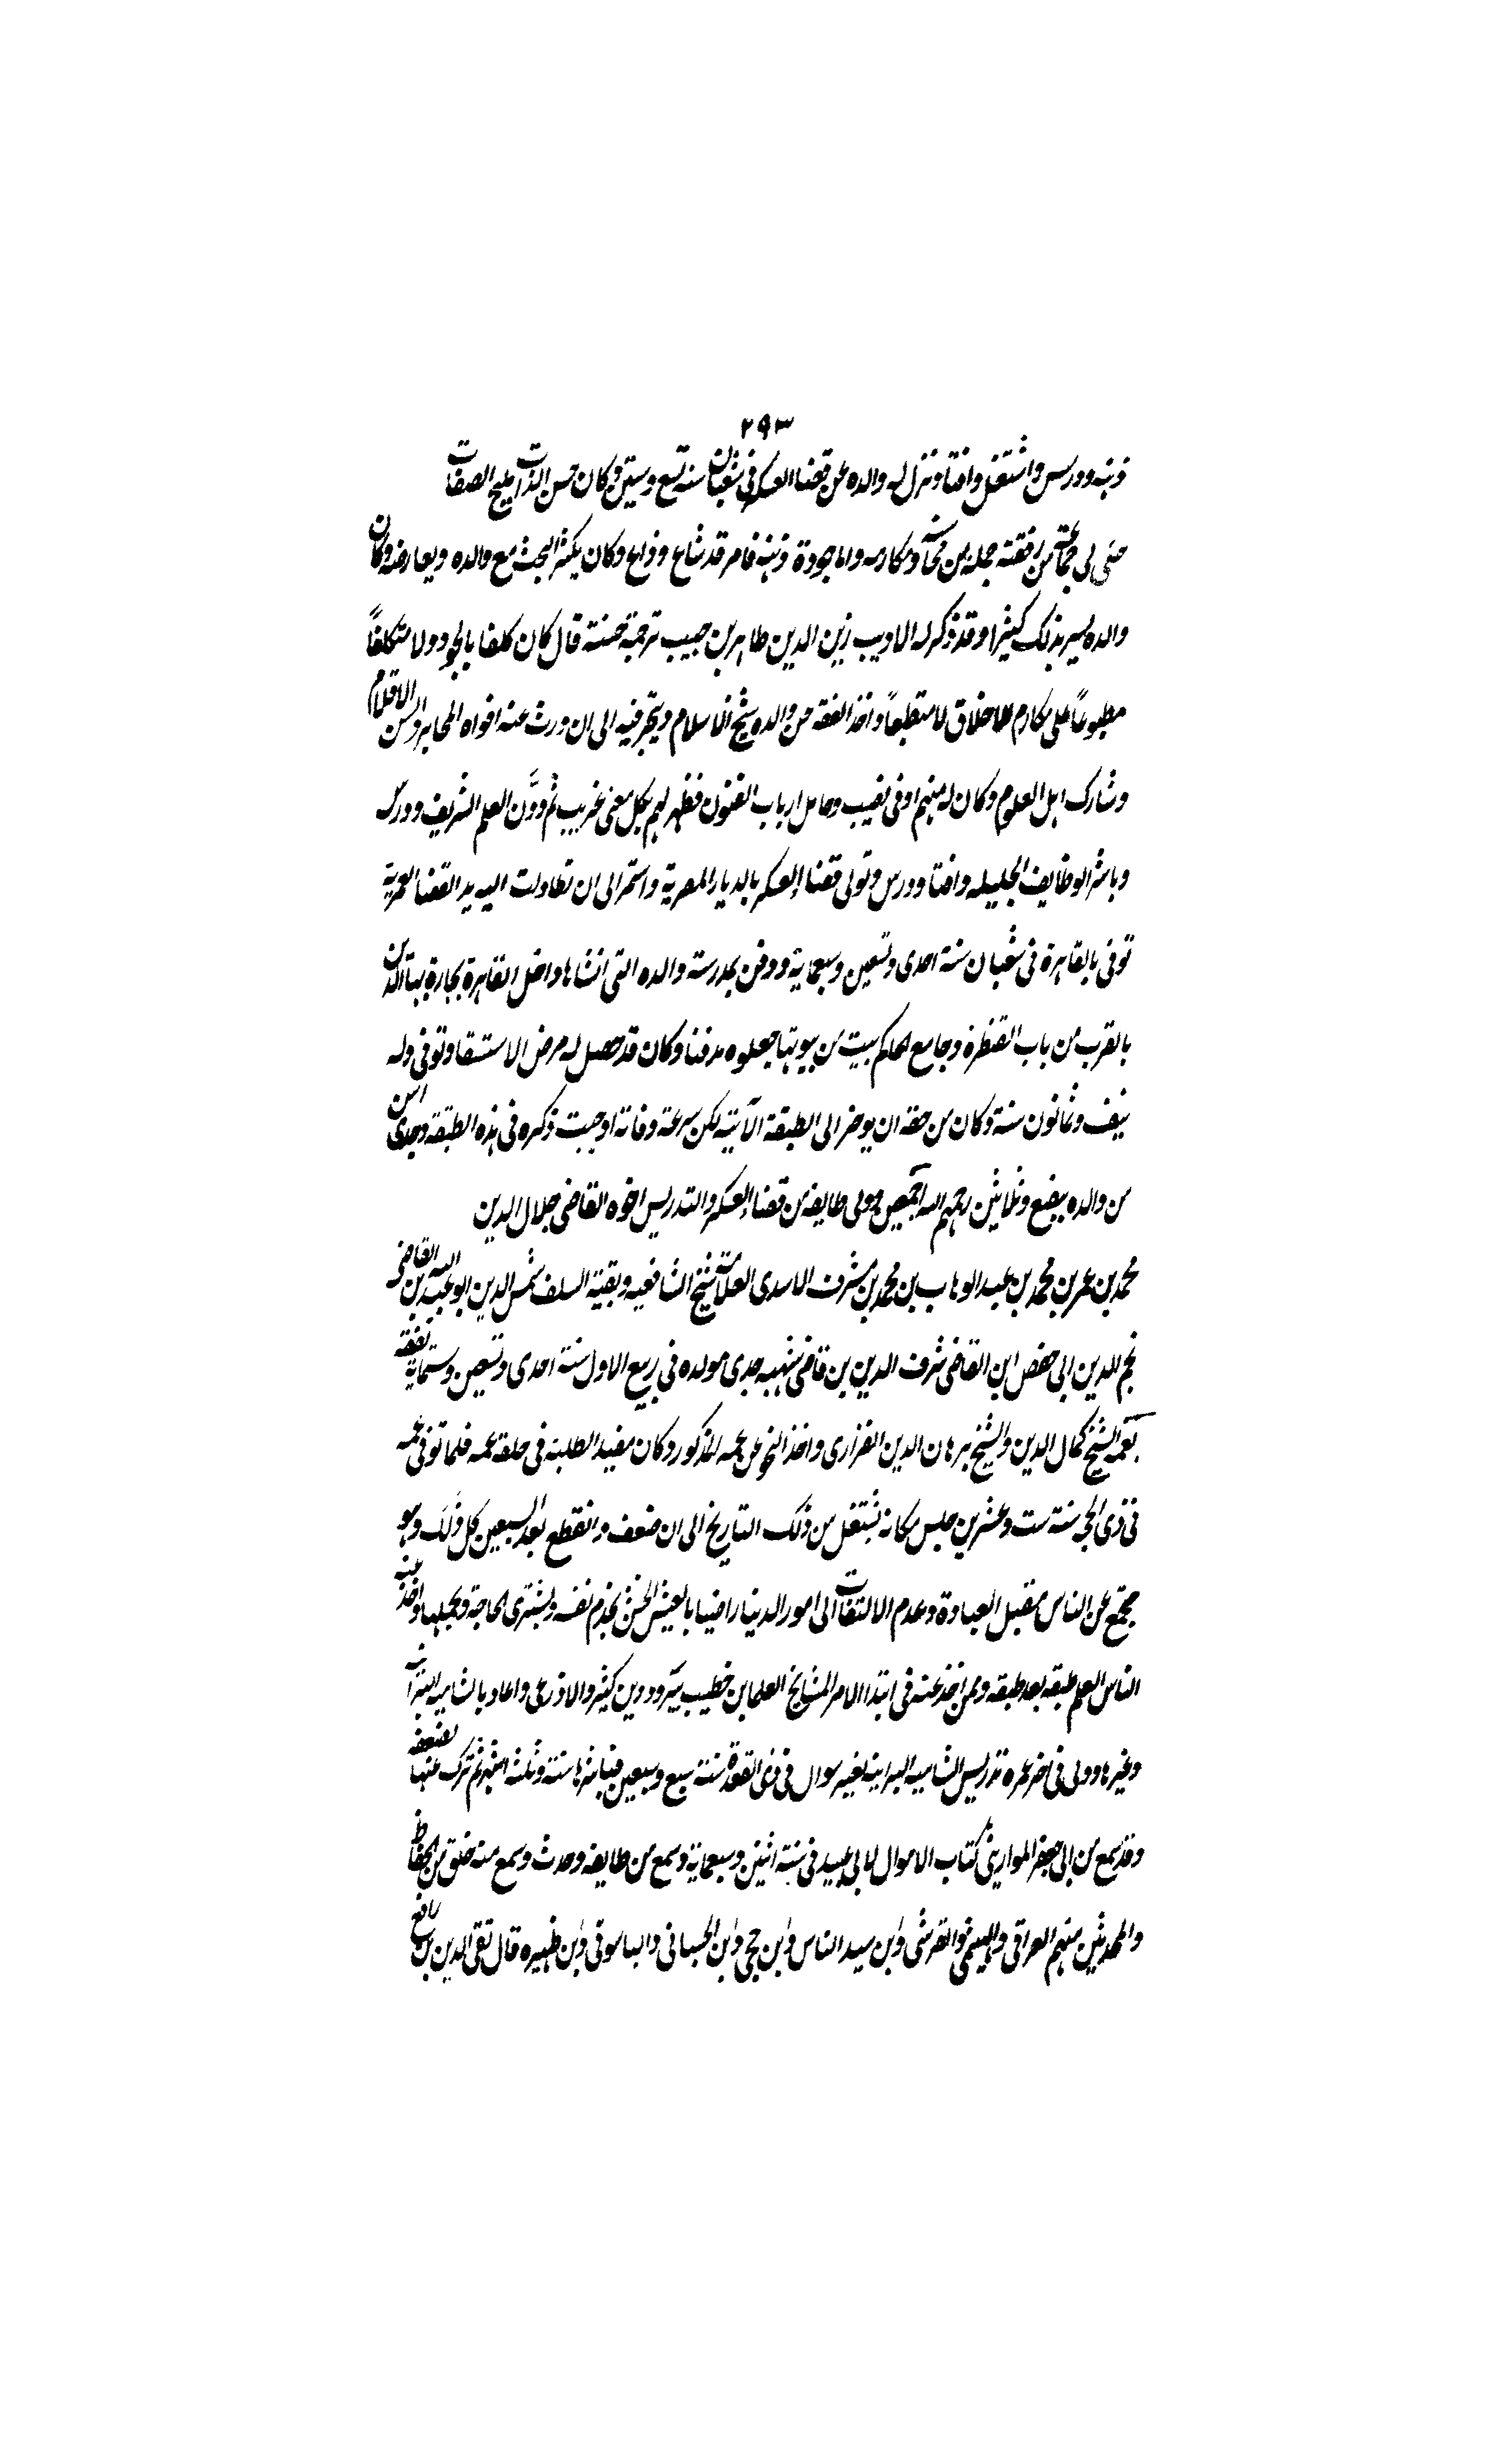 ٢٩٣
ذهنه ودرس واشتغل وافتا ونزل له والده عن قضا العسكر في شعبان سنة تسع وستين وكان حسن الذات مليح الصفات
حكى لي جماعة من رفقته جملة من محاسنه ومكارمه واما جودة ذهنه فامر قد شاع وذاع وكان يكثر البحث مع والده ويعارضه وكان
والده يسر بذلك كثيرا وقد ذكر له الاديب زين الدين طاهر بن حبيب ترجمة حسنة قال كان كلفا بالجود ولا متكلفاً
مطبوعاً على مكارم الاخلاق لا متطبعاً واخذ الفقه من والده شيخ الاسلام وتبحر فيه الى ان ورث عنه افواه المحابر والسن الاقلام
وشارك اهل العلوم وكان له منهم اوفى نصيب وحامل ارباب الفنون فظهر لهم بكل معنى غريب ثم دوَّن العلم الشريف ودرس
وباشر الوظايف الجليله وافتا ودرس وتولى قضا العسكر بالديار المصرية واستمر الى ان تطاولت اليه يد القضا العمرية
توفى بالقاهرة فى شعبان سنة احدى وتسعين وسبعماية ودفن بمدرسة والده التى انشاها داخل القاهرة بحارة بهاالدين
بالقرب من باب القنطرة وجامع الحاكم بيت من بيوتها جعلوه مدفنا وكان قد حصل له مرض الاستسقا وتوفى وله
نيف وثمانون سنة وكان من حقه ان يوخر الى الطبقة الآتية لكن سرعة وفاته اوجبت ذكره فى هذه الطبقة وجدى اسن
من والده ببضع وثلاثين رحمهم الله اجمعين وولى وظايفه من قضاء العسكر والتدريس اخوه القاضى جلال الدين
محمد بن عمر بن محمد بن عبد الوهاب بن محمد بن مشرف الاسدى العلامة شيخ الشافعيه وبقية السلف شمس الدين ابو عبد الله بن القاضى
نجم الدين ابى حفص ابن القاضى شرف الدين بن قاضى شهبه جدى مولده فى ربيع الاول سنة احدى وتسعين وستماية تفقه
بعمه الشيخ كمال الدين والشيخ برهان الدين الفزارى واخذ النحو عن عمه المذكور وكان مفيد الطلبة فى حلقة عمه فلما توفى عمه
فى ذى الحجة سنة ست وعشرين جلس مكانه يشتغل من ذلك التاريخ الى ان ضعف وانقطع بعد السبعين كل ذلك وهو
مجمع عن الناس مقبل العبادة وعدم الالتفات الى امور الدنيا راضيا بالعيش الخشن يخدم نفسه ويشترى الحاجة ويحملها واخذ عنه
الناس العلم طبقه بعد طبقه وممن اخذ عنه فى ابتدا الامر المشايخ العلما بن خطيب يبرود وبن كثير والاذرعى واعاد بالشاميه البرانية
وغيرها وولى فى اخر عمره تدريس الشاميه البرانيه بغير سوال فى ذى القعدة سنة سبع وسبعين فباشرها سنة وثلثه اشهر ثم تركه لضعفه منها
وقد سمع من ابى جعفر الموازينى كتاب الاموال لابى عبيد فى سنة اثنين وسبعماية وسمع من طايفه وحدث وسمع منه خلق من الحفاظ
والمحدثين منهم العراقى والهيثمى والقرشى وابن سيد الناس وابن حجى وابن الحسبانى والياسوفى وابن ظهيره قال تقى الدين بن رافع